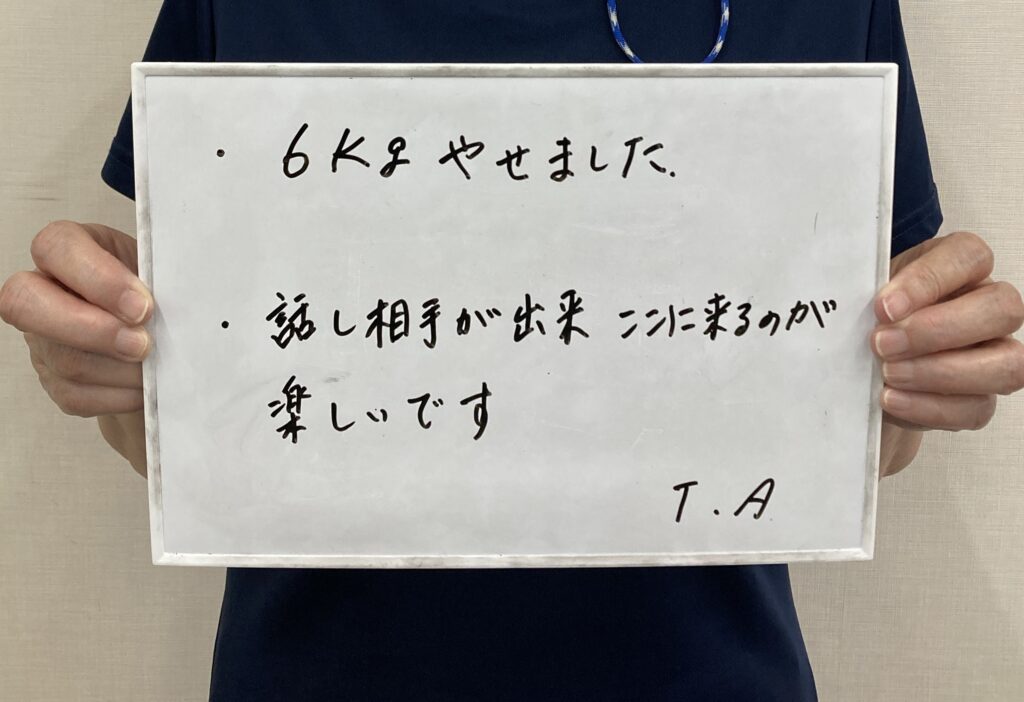 ・ 6Kg やせました.
・ 話し相手が出来 ここに来るのが
楽しいです
T.A